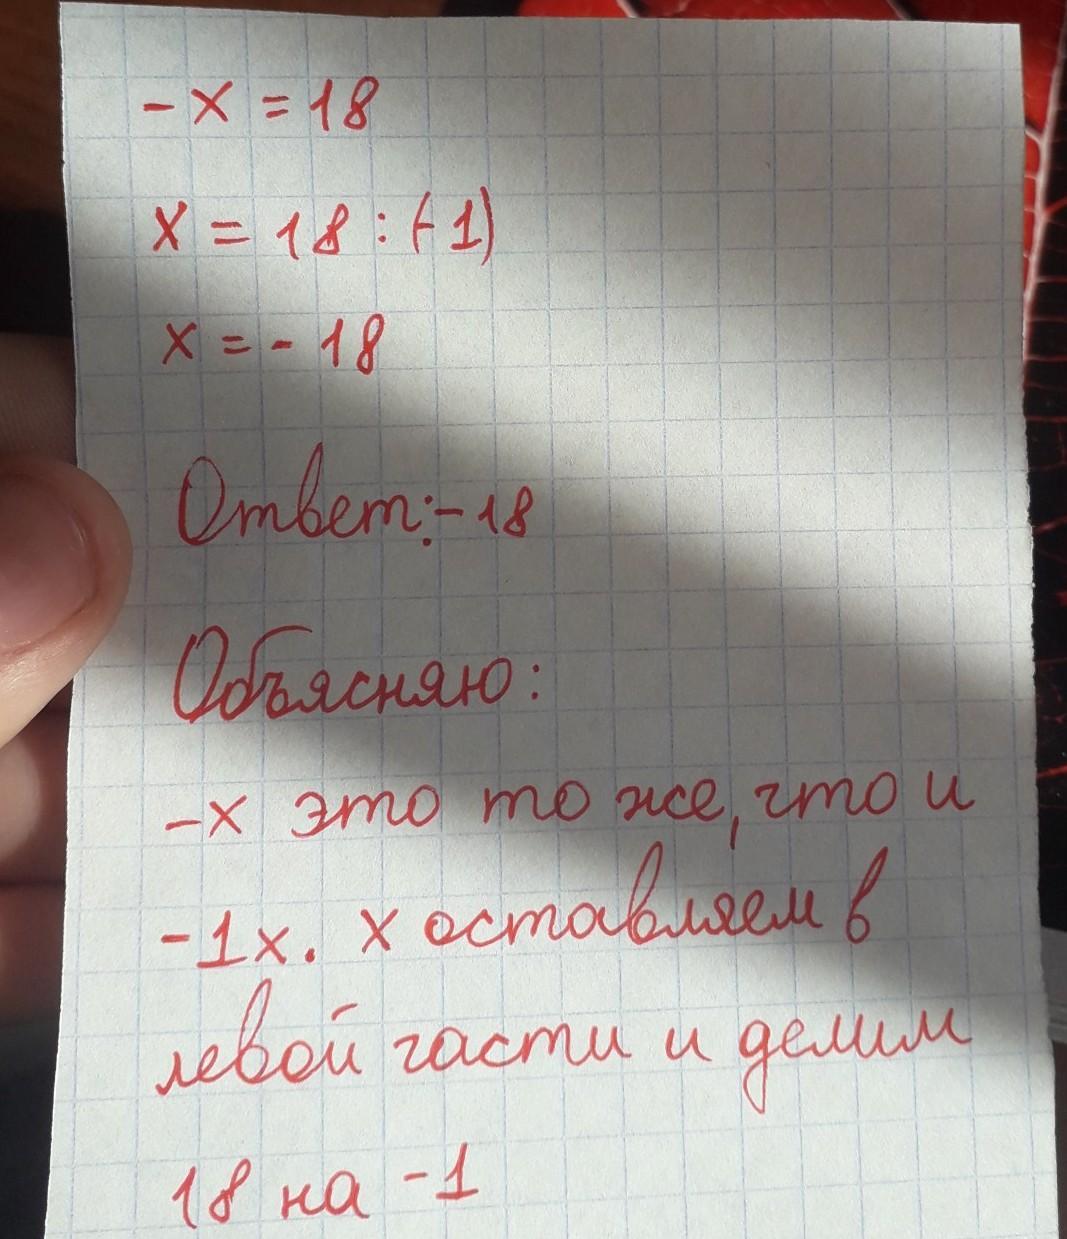 -x = 18
x = 18 : (-1)
x = - 18
Ответ: -18
Объясняю:
-x это то же, что и
-1x. x оставляем в
левой части и делим
18 на -1